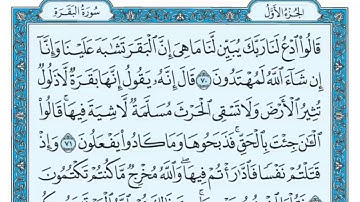 الجزء الأول سورة البقرة
قَالُوا۟ ٱدْعُ لَنَا رَبَّكَ يُبَيِّن لَّنَا مَا هِىَ إِنَّ ٱلْبَقَرَ تَشَٰبَهَ عَلَيْنَا وَإِنَّآ
إِن شَآءَ ٱللَّهُ لَمُهْتَدُونَ ٧٠ قَالَ إِنَّهُۥ يَقُولُ إِنَّهَا بَقَرَةٌ لَّا ذَلُولٌ
تُثِيرُ ٱلْأَرْضَ وَلَا تَسْقِى ٱلْحَرْثَ مُسَلَّمَةٌ لَّا شِيَةَ فِيهَا ۚ قَالُوا۟
ٱلْـَٰٔنَ جِئْتَ بِٱلْحَقِّ ۚ فَذَبَحُوهَا وَمَا كَادُوا۟ يَفْعَلُونَ ٧١ وَإِذْ
قَتَلْتُمْ نَفْسًا فَٱدَّٰرَْٰٔتُمْ فِيهَا ۖ وَٱللَّهُ مُخْرِجٌ مَّا كُنتُمْ تَكْتُمُونَ